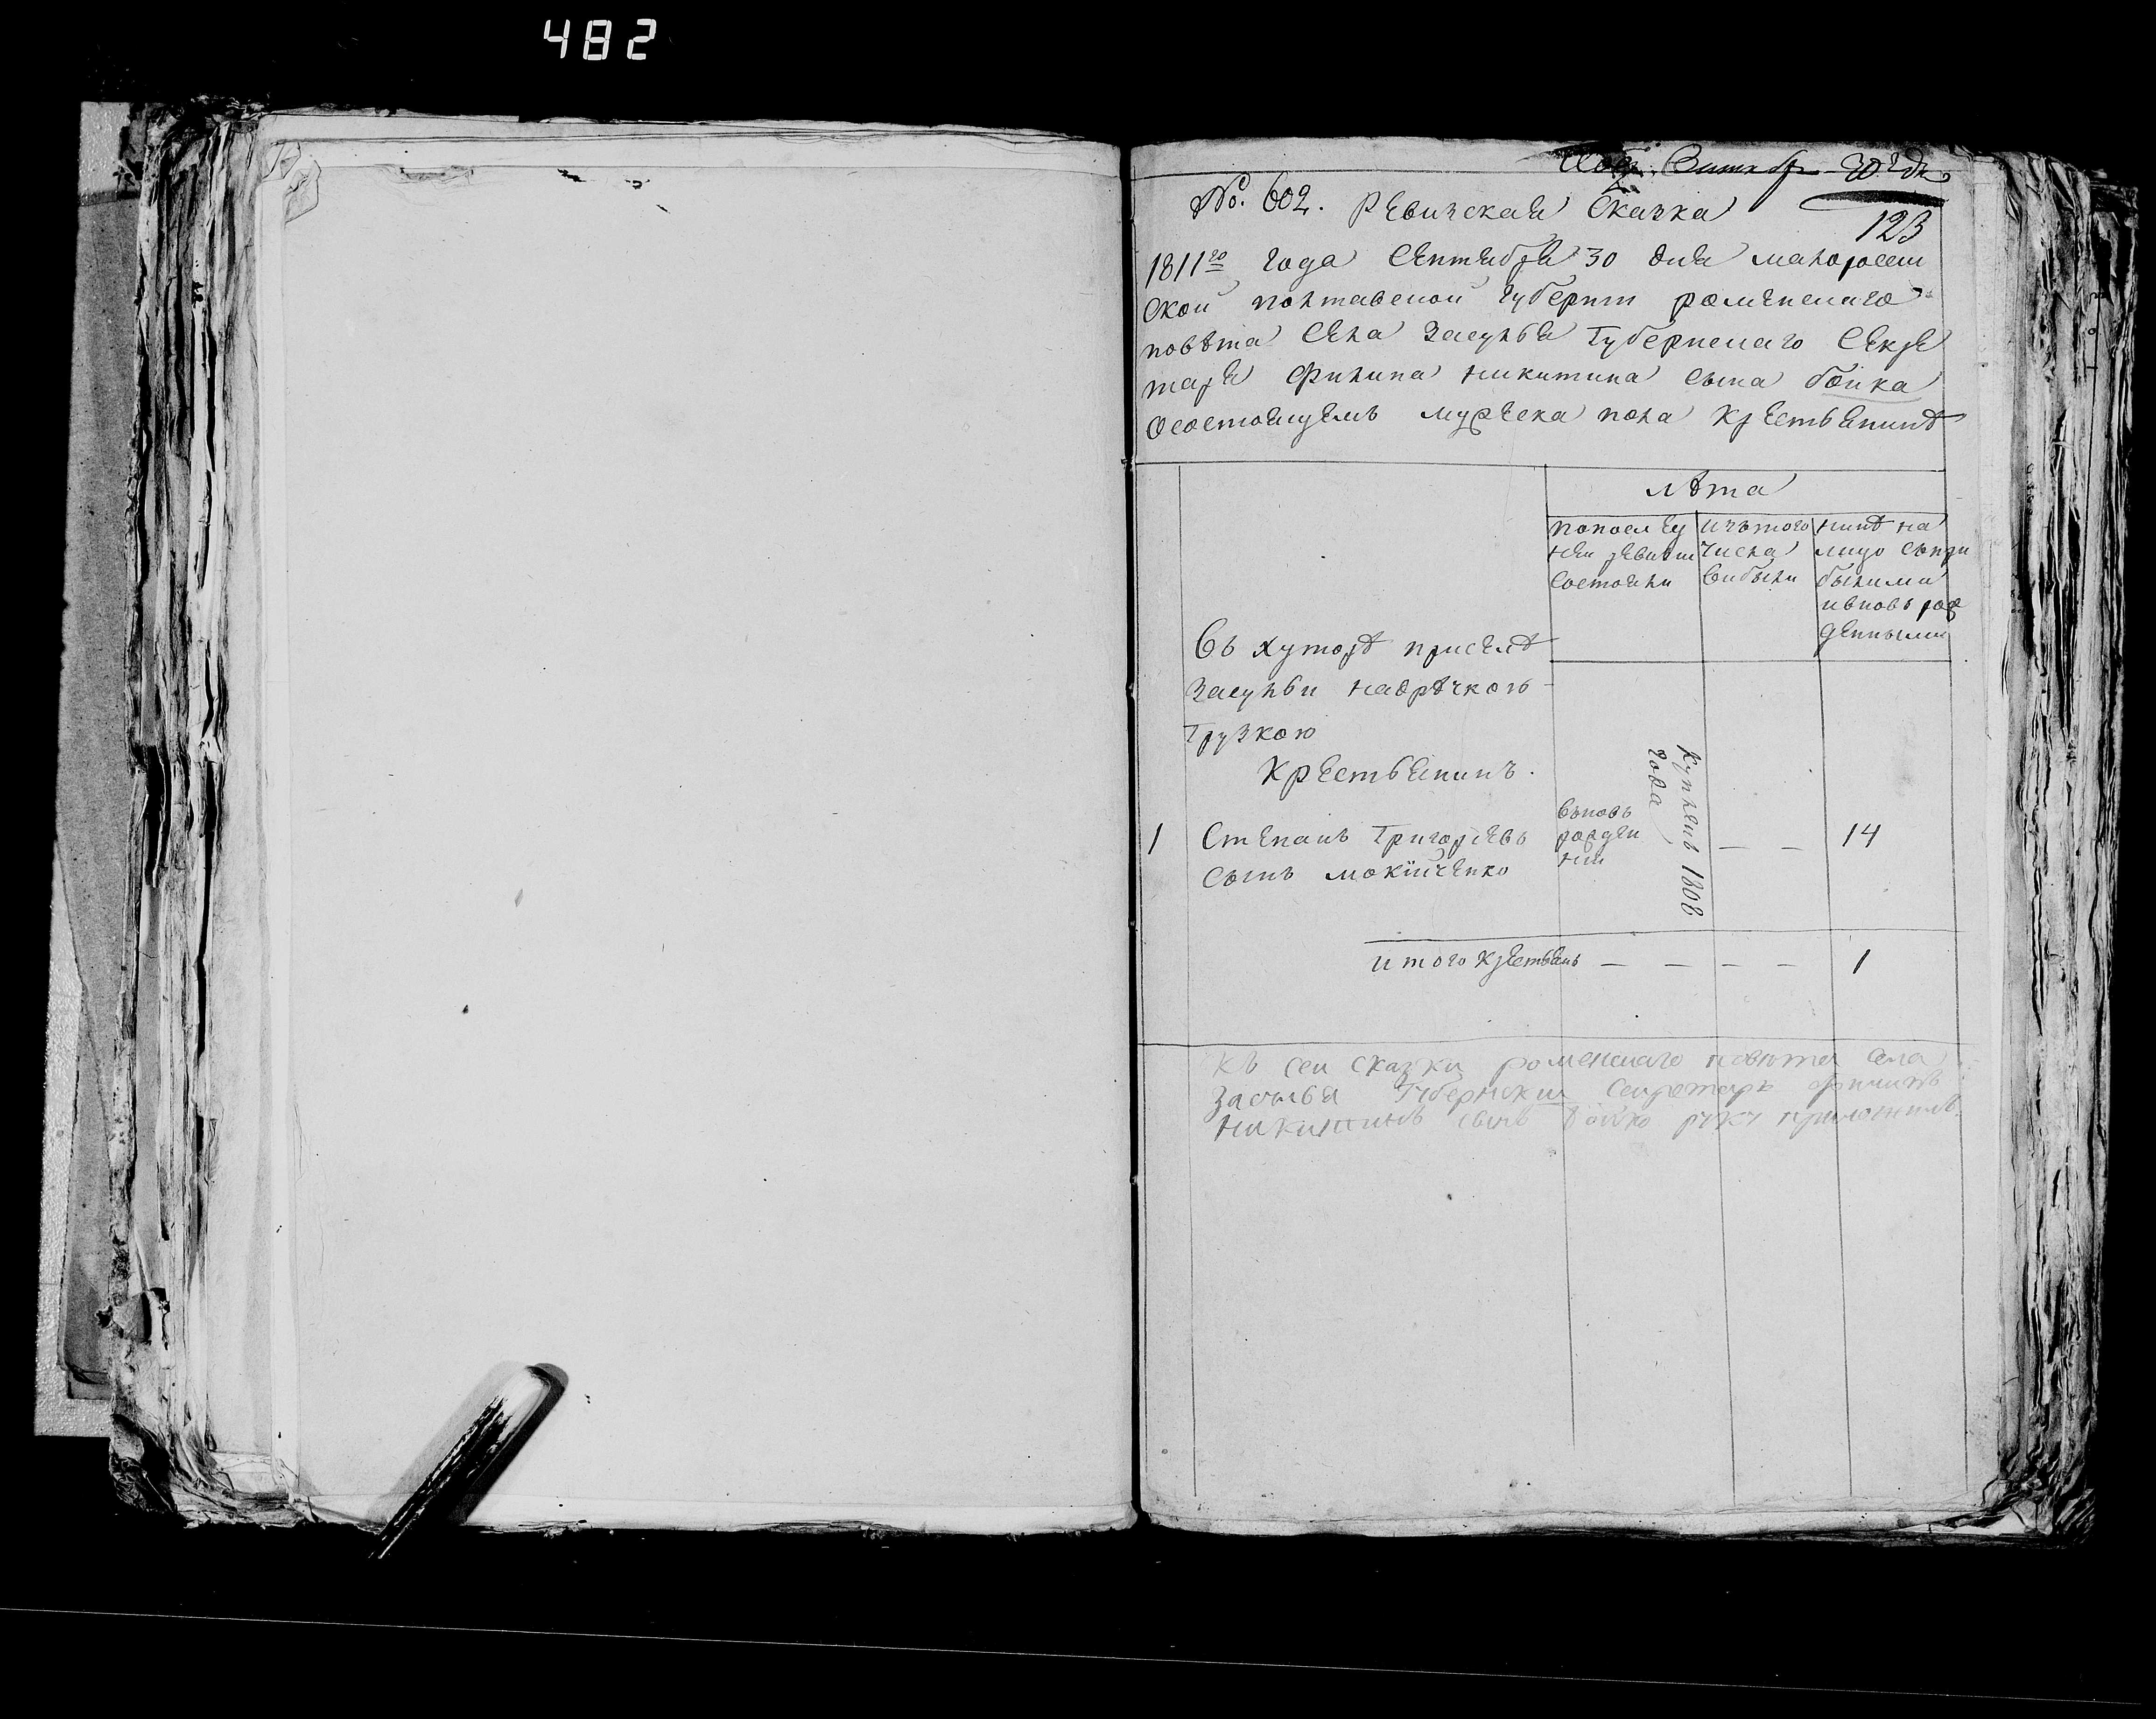 482
No. 602. Ревизская Сказка
123
1811го года Сентября 30 дня малоросси
ской полтавской губернии роменскаго
повѣта Села Засулья Губернскаго Секре
таря Филипа Никитина сына бойка
Осостоящемъ мужеска пола Крестьянинѣ
Лѣта
попослед
ней ревизи
состояли
изътого
числа
выбыли
нынѣ на
лицо съпри
былыми
ивновь рож
денными
Въ хуторѣ присѣлѣ
Засульи надрѣчкою
Грузкою
Крестьянинъ.
1 Степанъ Григорьевъ
сынъ мокійченко
вновь
рожден
ній
Купленъ 1808
года
— — 14
итого Крестьянъ — — — — 1
Къ сеи сказки роменскаго повюта села
Засулья Губернский Секретарь Филипъ
Никитинъ сынъ Бойко руку приложилъ.